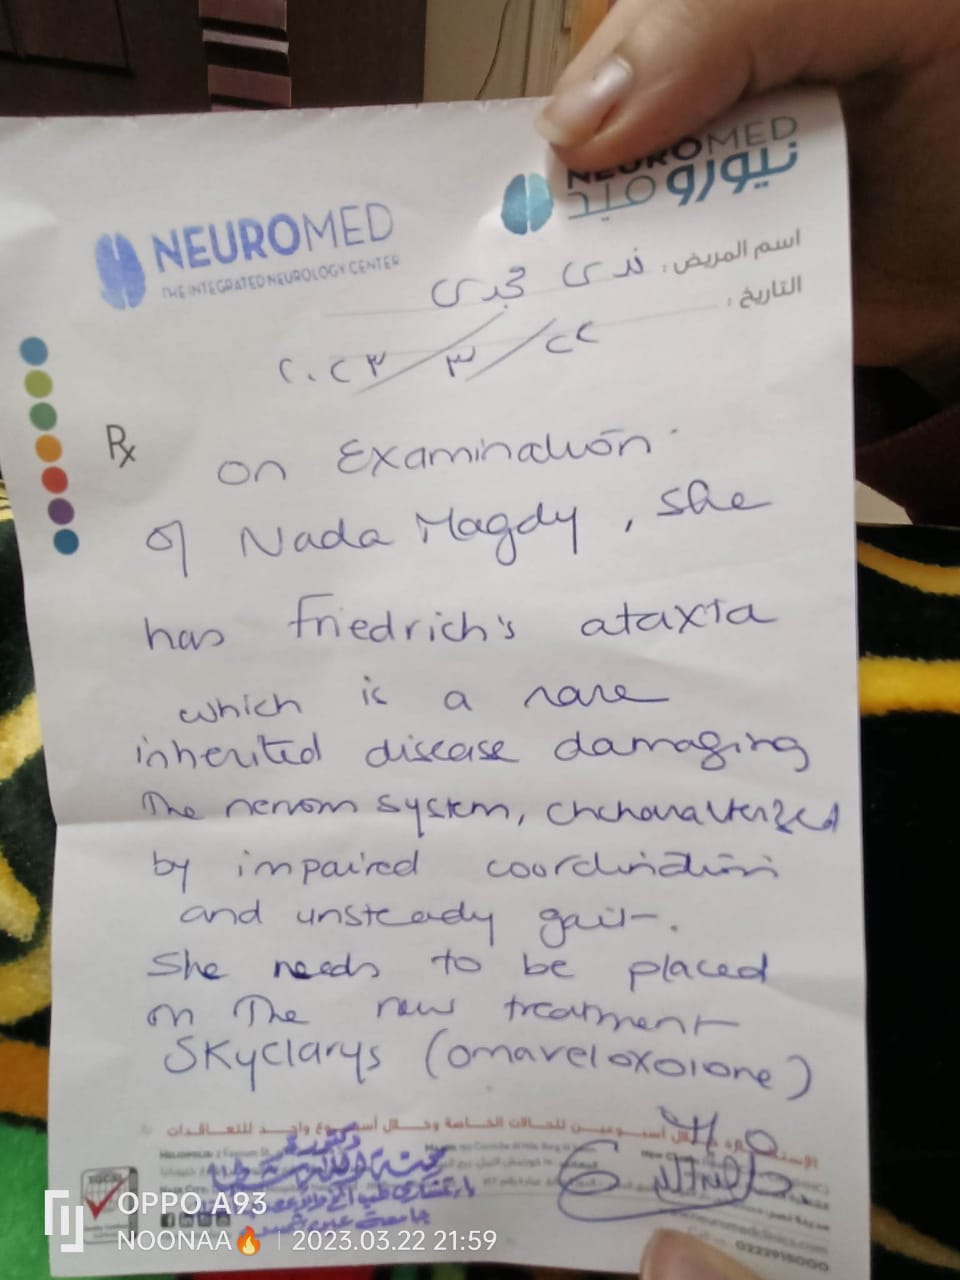 NEUROMED
نيورو ميد
NEUROMED
THE INTEGRATED NEUROLOGY CENTER
اسم المريض: ندى مجدى
التاريخ:
٢٢/٣/٢٠٢٣
Rx
on Examination
of Nada Magdy, she
has Friedrich's ataxia
which is a rare
inherited disease damaging
The nervous system, chcharacterized
by impaired coordination
and unsteady gait.
She needs to be placed
on The new treatment
SKyclarys (omaveloxolone)
خلال أسبوعين للحالات الخاصة وخلال أسبوع واحد للتعاقدات
OPPO A93
NOONAA🔥 | 2023.03.22 21:59